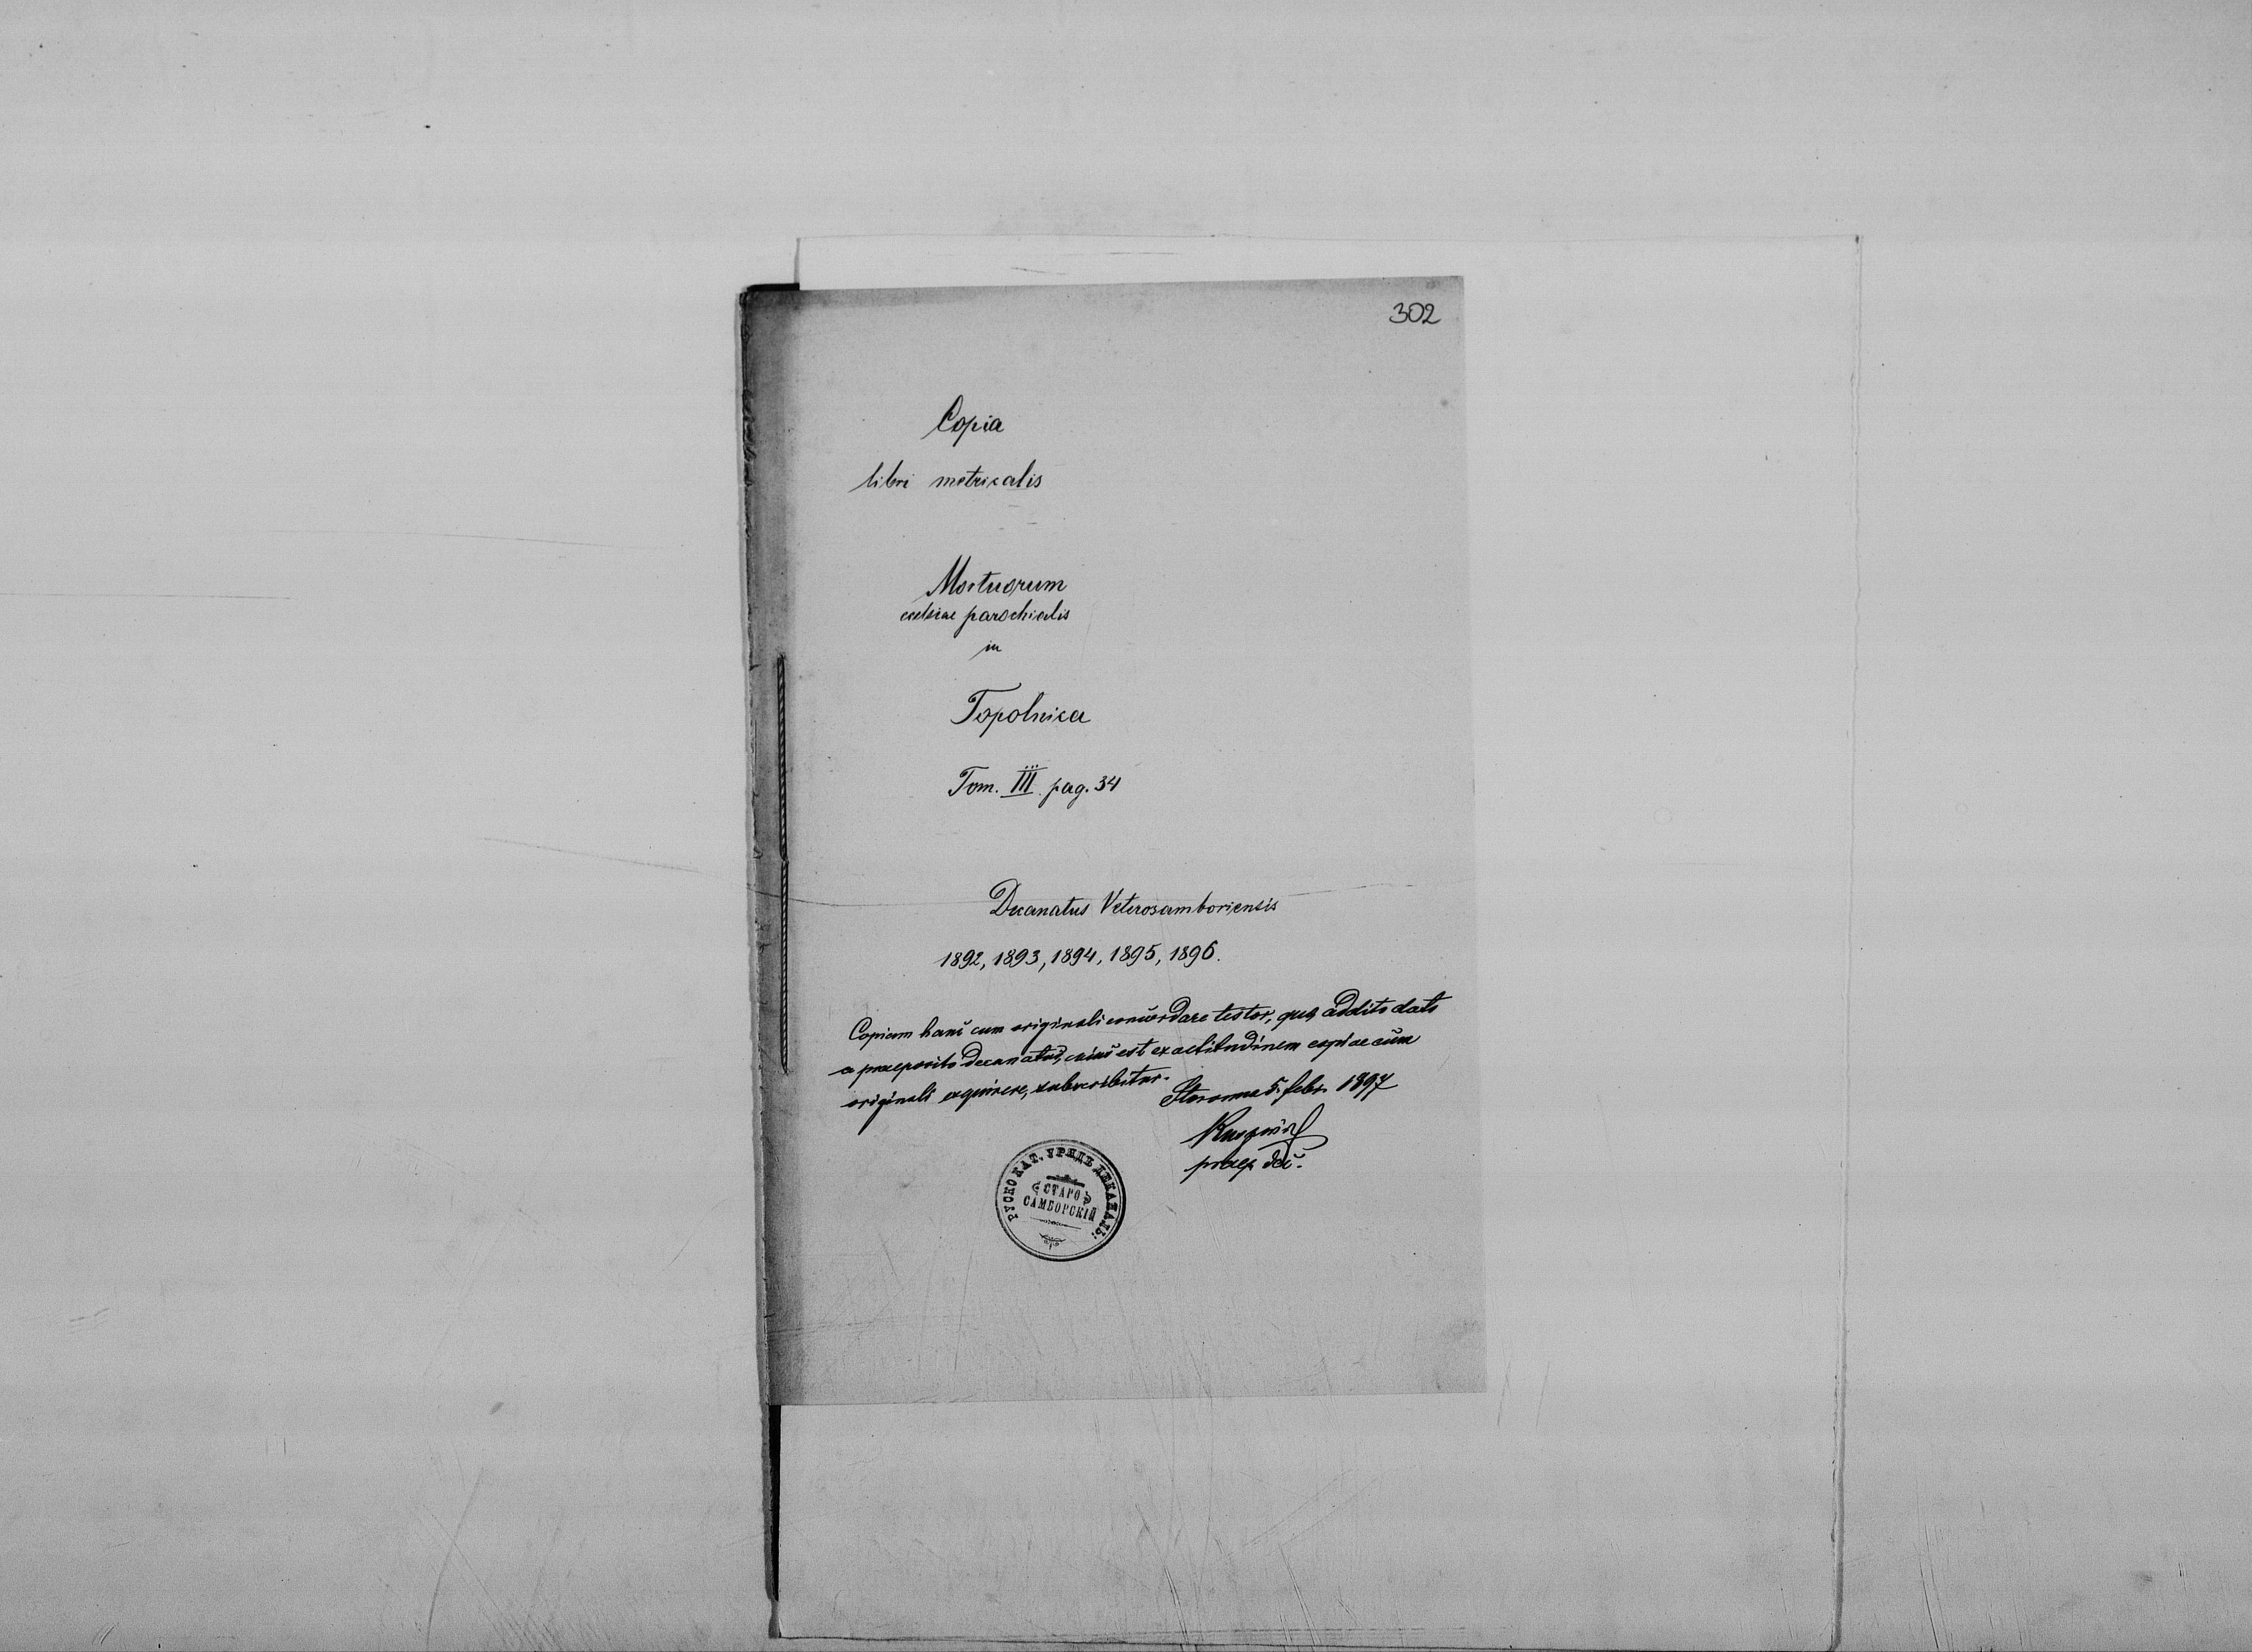 302
Copia
libri metricalis
Mortuorum
ecclesiae parochialis
in
Topolnica
Tom. III pag. 34
Decanatus Veterosamboriensis
1892, 1893, 1894, 1895, 1896.
Copiam hanc cum originali concordare testor, addito dato
a praeposito decanatus, cuius est exactitudinem copiae cum
originali exquirere, subscribitur.
5. febr. 1897
praep. dec.
РУСКО КАТ. УРЯДЪ ДЕКАНАЛЬ:
СТАРО
САМБОРСКІЙ